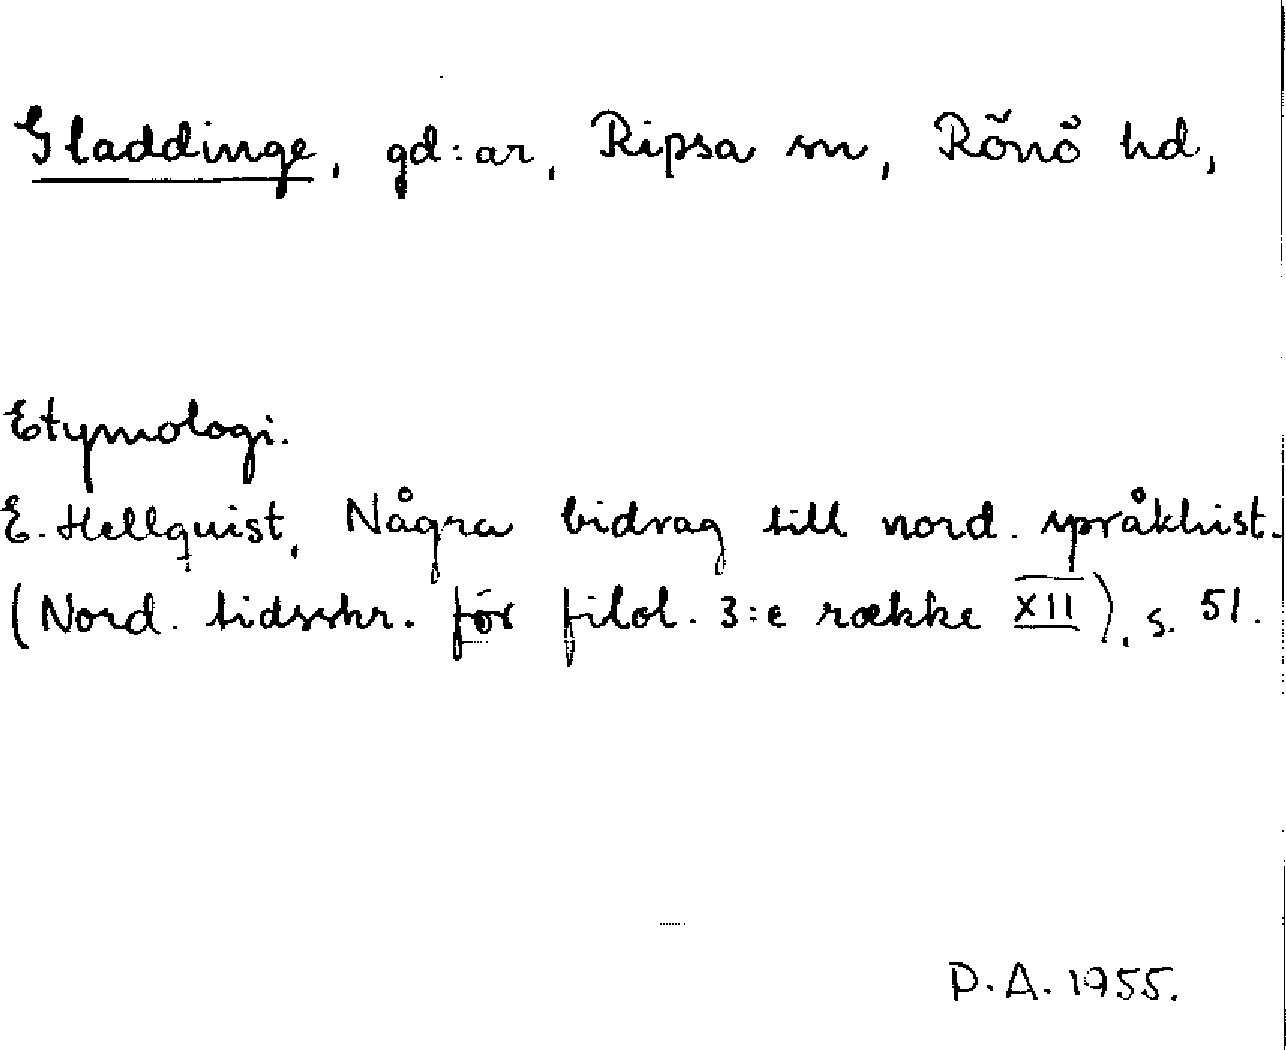 Gladdinge, gd:ar, Ripsa sn, Rönö hd,
Etymologi.
E. Hellquist, Några bidrag till nord. språkhist.
(Nord. tidsskr. för filol. 3:e række XII), s. 51.
D.A. 1955.